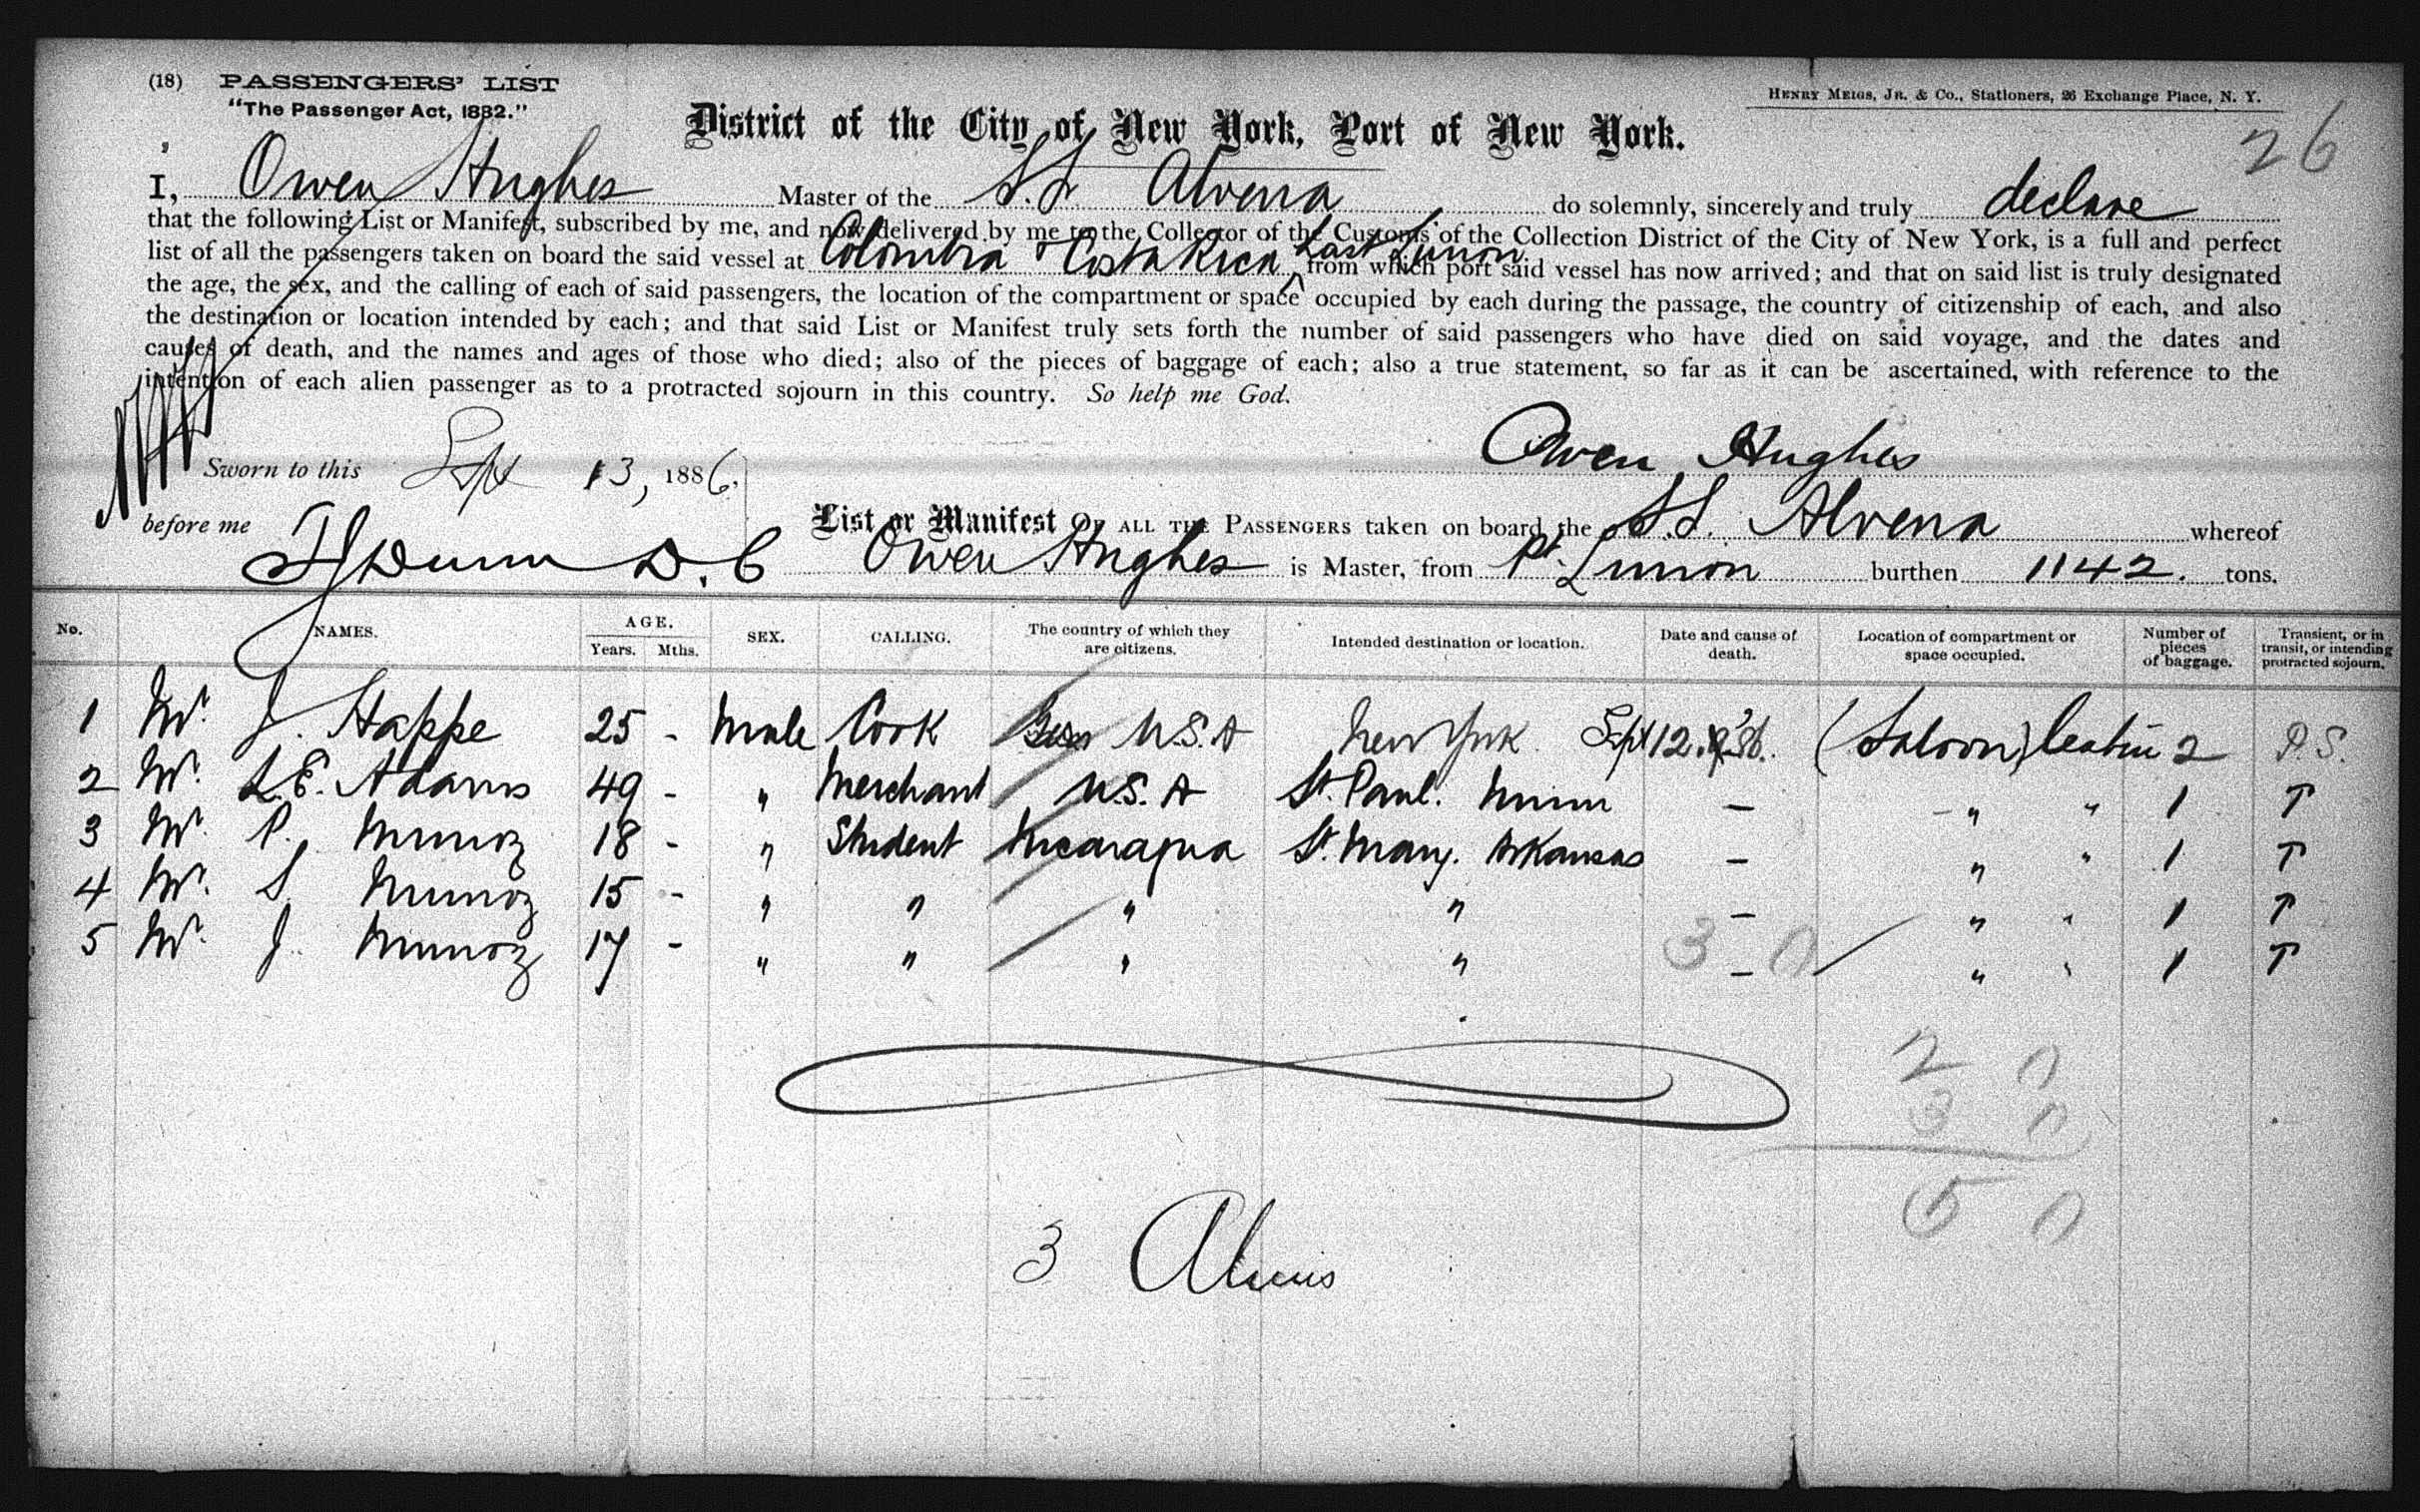 (18) PASSENGERS' LIST
"The Passenger Act, 1882."
HENRY MEIGS, JR. & CO., Stationers, 26 Exchange Place, N. Y.
District of the City of New York, Port of New York.
26
I, Owen Hughes Master of the S.S Alvena do solemnly, sincerely and truly declare
that the following List or Manifest, subscribed by me, and now delivered by me to the Collector of the Customs of the Collection District of the City of New York, is a full and perfect
list of all the passengers taken on board the said vessel at Colombia & Costa Rica Last Limon from which port said vessel has now arrived; and that on said list is truly designated
the age, the sex, and the calling of each of said passengers, the location of the compartment or space occupied by each during the passage, the country of citizenship of each, and also
the destination or location intended by each; and that said List or Manifest truly sets forth the number of said passengers who have died on said voyage, and the dates and
causes of death, and the names and ages of those who died; also of the pieces of baggage of each; also a true statement, so far as it can be ascertained, with reference to the
intention of each alien passenger as to a protracted sojourn in this country. So help me God.
Owen Hughes
Sworn to this Sept 13, 1886.
before me Dunn D.C
List or Manifest OF ALL THE PASSENGERS taken on board the S.S. Alvena whereof
Owen Hughes is Master, from Pt. Limon burthen 1142. tons.
No. NAMES. AGE. Years. Mths. SEX. CALLING. The country of which they are citizens. Intended destination or location. Date and cause of death. Location of compartment or space occupied. Number of pieces of baggage. Transient, or in transit, or intending protracted sojourn.
1 Mr. J. Happe 25 - Male Cook U.S.A New York Sept 12. '86. (Saloon) Cabin 2 P.S.
2 Mr. L.E. Adams 49 - " Merchant U.S.A St. Paul. Minn - " " 1 T
3 Mr. P. Munoz 18 - " Student Nicaragua St. Mary. Arkansas - " " 1 T
4 Mr. S. Munoz 15 - " " " " - " " 1 T
5 Mr. J. Munoz 17 - " " " " - " " 1 T
3 0
2 0
3 0
5 0
3 Aliens